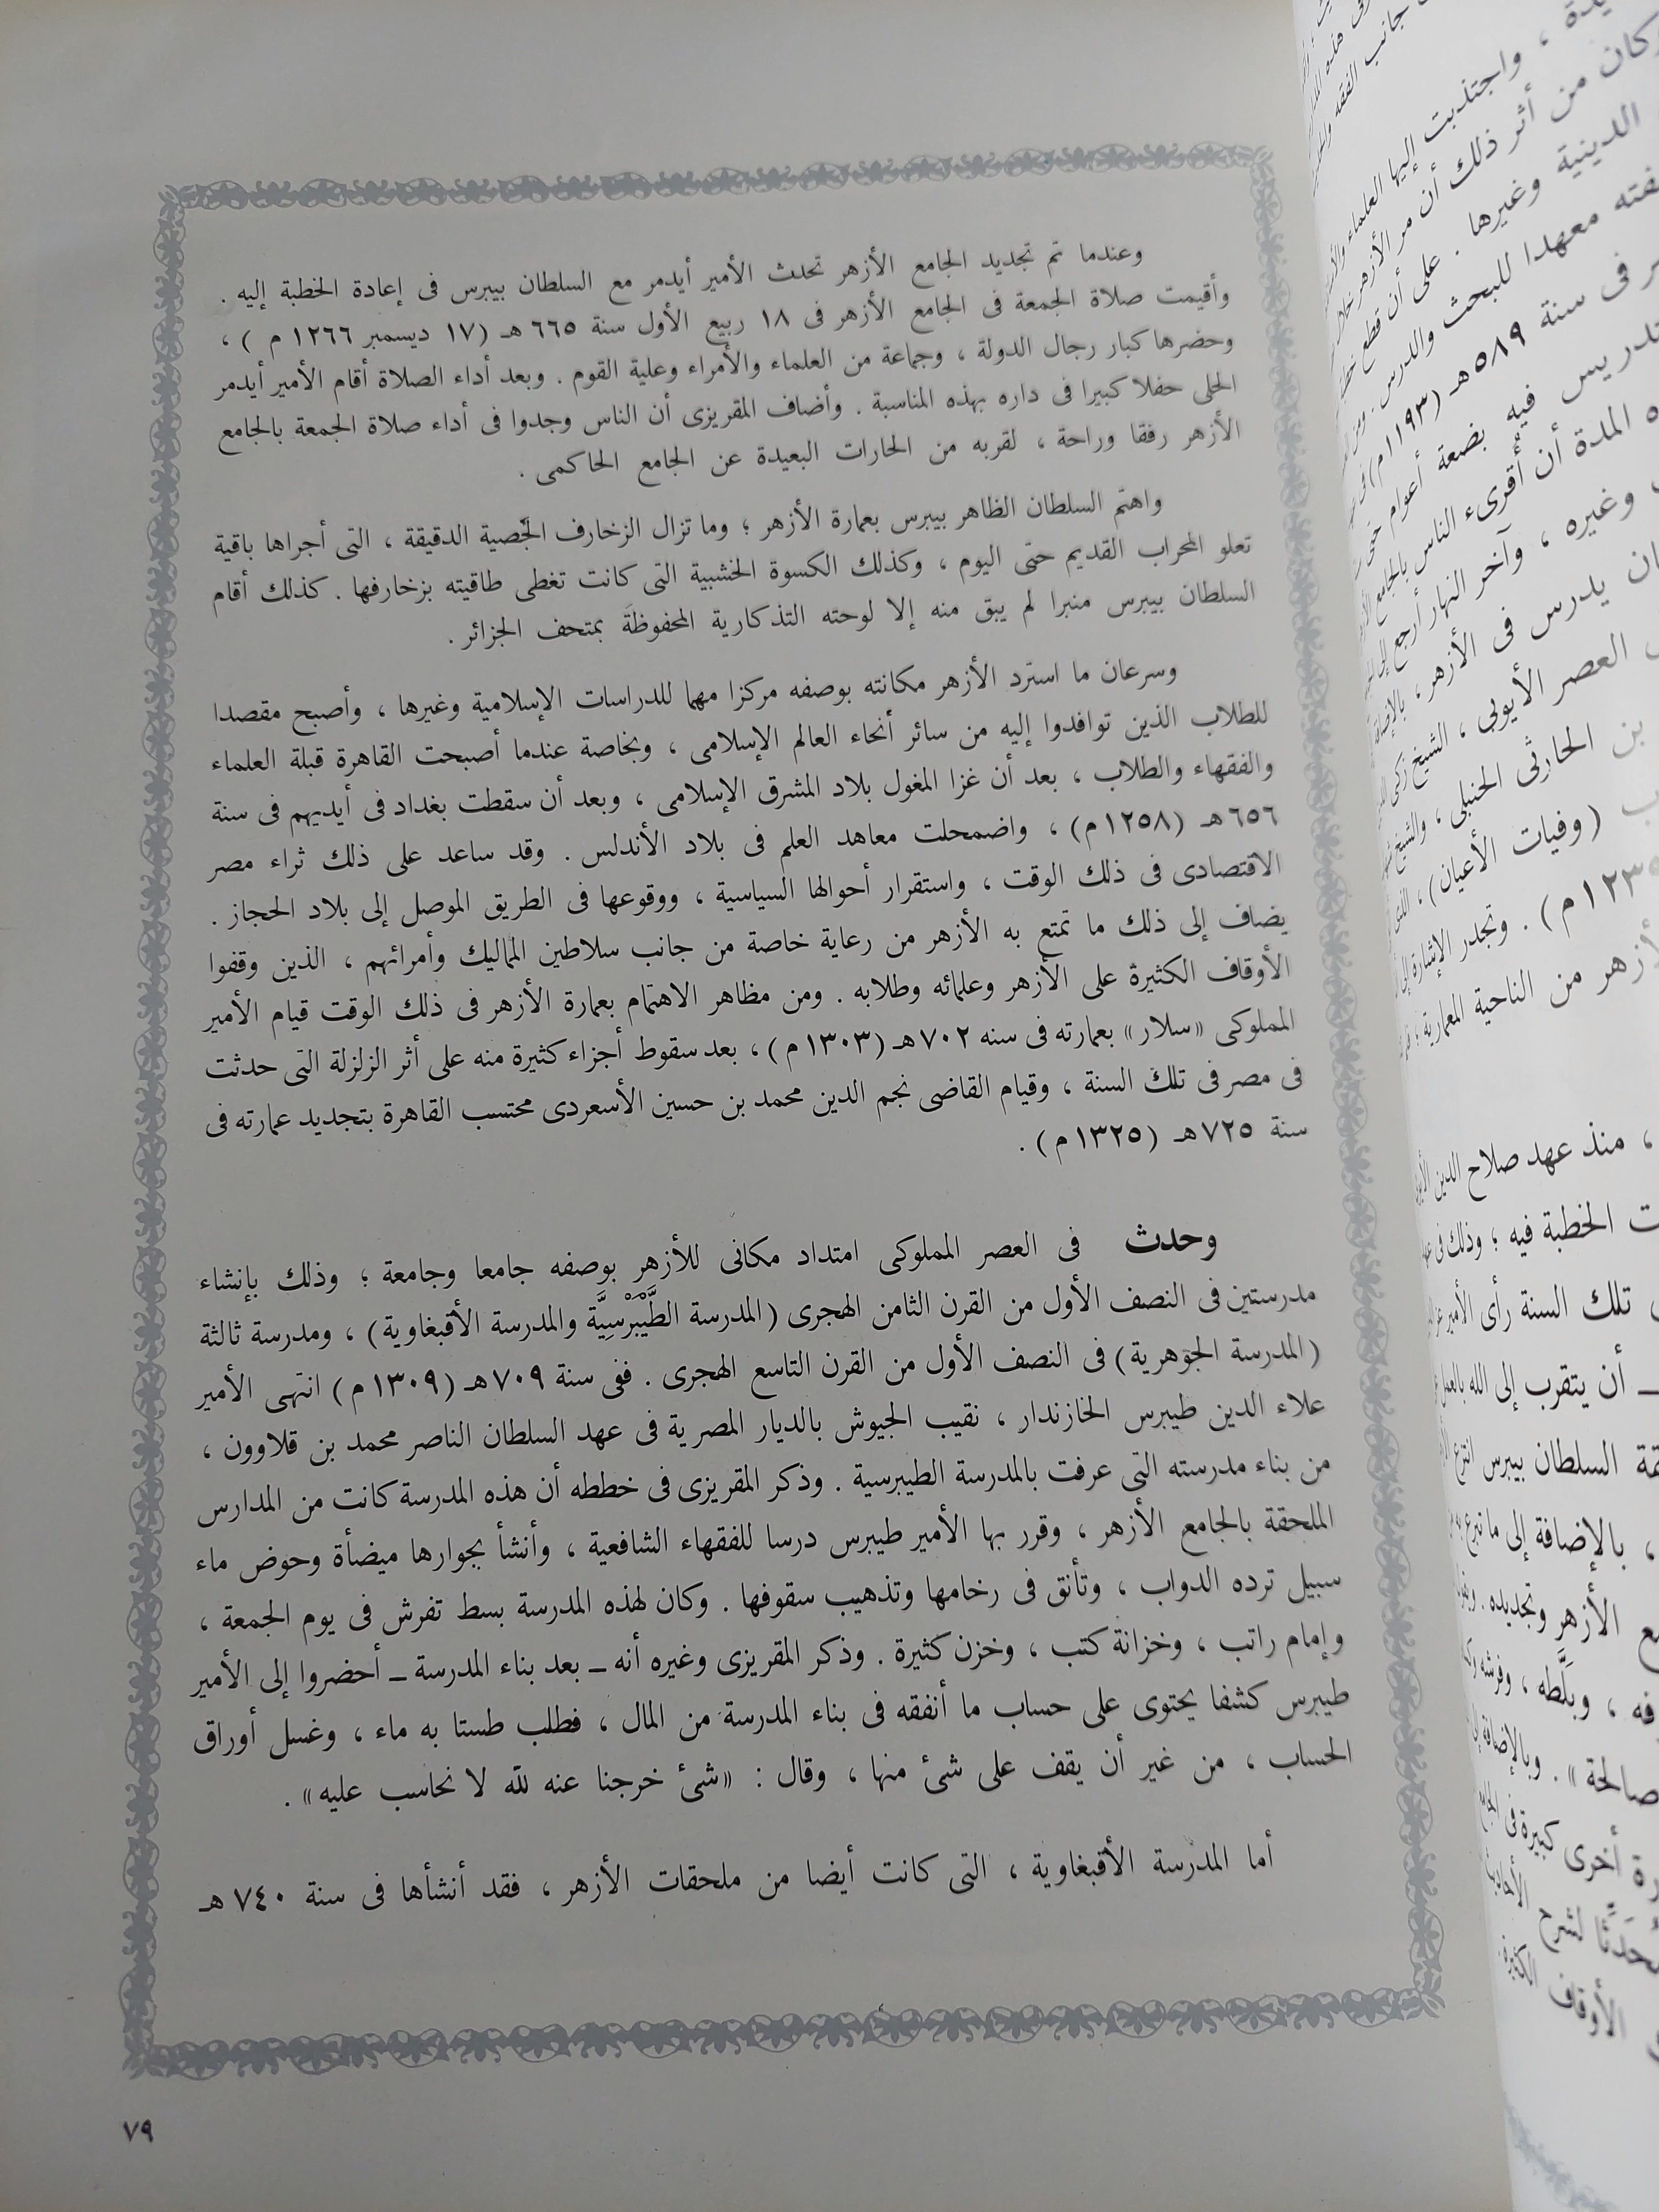 وعندما تم تجديد الجامع الأزهر تحدث الأمير أيدمر مع السلطان بيبرس فى إعادة الخطبة إليه .
وأقيمت صلاة الجمعة فى الجامع الأزهر فى ١٨ ربيع الأول سنة ٦٦٥ هـ (١٧ ديسمبر ١٢٦٦ م ) ،
وحضرها كبار رجال الدولة ، وجماعة من العلماء والأمراء وعلية القوم . وبعد أداء الصلاة أقام الأمير أيدمر
الحلى حفلا كبيرا فى داره بهذه المناسبة . وأضاف المقريزى أن الناس وجدوا فى أداء صلاة الجمعة بالجامع
الأزهر رفقا وراحة ، لقربه من الحارات البعيدة عن الجامع الحاكمى .
واهتم السلطان الظاهر بيبرس بعمارة الأزهر ؛ وما تزال الزخارف الجصية الدقيقة ، التى أجراها باقية
تعلو المحراب القديم حتى اليوم ، وكذلك الكسوة الخشبية التى كانت تغطى طاقيته بزخارفها . كذلك أقام
السلطان بيبرس منبرا لم يبق منه إلا لوحته التذكارية المحفوظة بمتحف الجزائر .
وسرعان ما استرد الأزهر مكانته بوصفه مركزا مهما للدراسات الإسلامية وغيرها ، وأصبح مقصدا
للطلاب الذين توافدوا إليه من سائر أنحاء العالم الإسلامى ، وبخاصة عندما أصبحت القاهرة قبلة العلماء
والفقهاء والطلاب ، بعد أن غزا المغول بلاد المشرق الإسلامى ، وبعد أن سقطت بغداد فى أيديهم فى سنة
٦٥٦هـ (١٢٥٨م) ، واضمحلت معاهد العلم فى بلاد الأندلس . وقد ساعد على ذلك ثراء مصر
الاقتصادى فى ذلك الوقت ، واستقرار أحوالها السياسية ، ووقوعها فى الطريق الموصل إلى بلاد الحجاز .
يضاف إلى ذلك ما تمتع به الأزهر من رعاية خاصة من جانب سلاطين المماليك وأمرائهم ، الذين وقفوا
الأوقاف الكثيرة على الأزهر وعلمائه وطلابه . ومن مظاهر الاهتمام بعمارة الأزهر فى ذلك الوقت قيام الأمير
المملوكى «سلار» بعمارته فى سنه ٧٠٢هـ (١٣٠٣م) ، بعد سقوط أجزاء كثيرة منه على أثر الزلزلة التى حدثت
فى مصر فى تلك السنة ، وقيام القاضى نجم الدين محمد بن حسين الأسعردى محتسب القاهرة بتجديد عمارته فى
سنة ٧٢٥هـ (١٣٢٥م) .
وحدث فى العصر المملوكى امتداد مكانى للأزهر بوصفه جامعا وجامعة ؛ وذلك بإنشاء
مدرستين فى النصف الأول من القرن الثامن الهجرى (المدرسة الطَّيْبَرْسِيَّة والمدرسة الأقبغاوية) ، ومدرسة ثالثة
(المدرسة الجوهرية) فى النصف الأول من القرن التاسع الهجرى . ففى سنة ٧٠٩هـ (١٣٠٩م) انتهى الأمير
علاء الدين طيبرس الخازندار ، نقيب الجيوش بالديار المصرية فى عهد السلطان الناصر محمد بن قلاوون ،
من بناء مدرسته التى عرفت بالمدرسة الطيبرسية . وذكر المقريزى فى خططه أن هذه المدرسة كانت من المدارس
الملحقة بالجامع الأزهر ، وقرر بها الأمير طيبرس درسا للفقهاء الشافعية ، وأنشأ بجوارها ميضأة وحوض ماء
سبيل ترده الدواب ، وتأنق فى رخامها وتذهيب سقوفها . وكان لهذه المدرسة بسط تفرش فى يوم الجمعة ،
وإمام راتب ، وخزانة كتب ، وخزن كثيرة . وذكر المقريزى وغيره أنه ـ بعد بناء المدرسة ـ أحضروا إلى الأمير
طيبرس كشفا يحتوى على حساب ما أنفقه فى بناء المدرسة من المال ، فطلب طستا به ماء ، وغسل أوراق
الحساب ، من غير أن يقف على شئ منها ، وقال : «شئ خرجنا عنه لله لا نحاسب عليه» .
أما المدرسة الأقبغاوية ، التى كانت أيضا من ملحقات الأزهر ، فقد أنشأها فى سنة ٧٤٠هـ
٧٩
واجتذبت إليها العلماء
وكان من أثر ذلك أن مر الأزهر
الدينية وغيرها . على أن قطع
معهدا للبحث والدرس .
فى سنة ٥٨٩هـ (١١٩٣م)
فيه بضعة أعوام حتى
المدة أن أقرىء الناس بالجامع
وغيره ، وآخر النهار أرجع إلى
يدرس فى الأزهر ،
العصر الأيوبى ، الشيخ زكى
بن الحارثى الحنبلى ، والشيخ
(وفيات الأعيان) ،
وتجدر الإشارة إلى
من الناحية المعمارية ؛
، منذ عهد صلاح الدين
الخطبة فيه ؛ وذلك فى
تلك السنة رأى الأمير
ـ أن يتقرب إلى الله
السلطان بيبرس انتزع
، بالإضافة إلى ما تبرع
الأزهر وتجديده .
، وبلَّطه ، وفرشه
صالحة» .
أخرى كبيرة فى
لشرح
الأوقاف